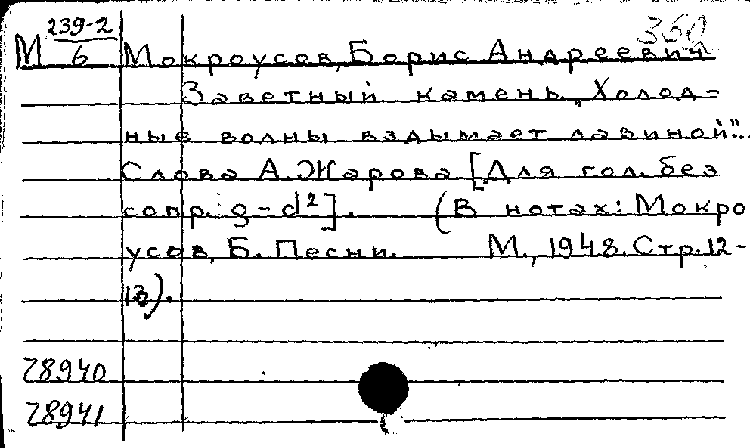 360
М 239-2/6 Мокроусов, Борис Андреевич
Заветный камень „Холод-
ные волны вздымает лавиной"..
Слова А. Жарова [Для гол. без
сопр. g-d²]. (В нотах: Мокро
усов, Б. Песни. М., 1948. Стр. 12-
13).
28940
28941